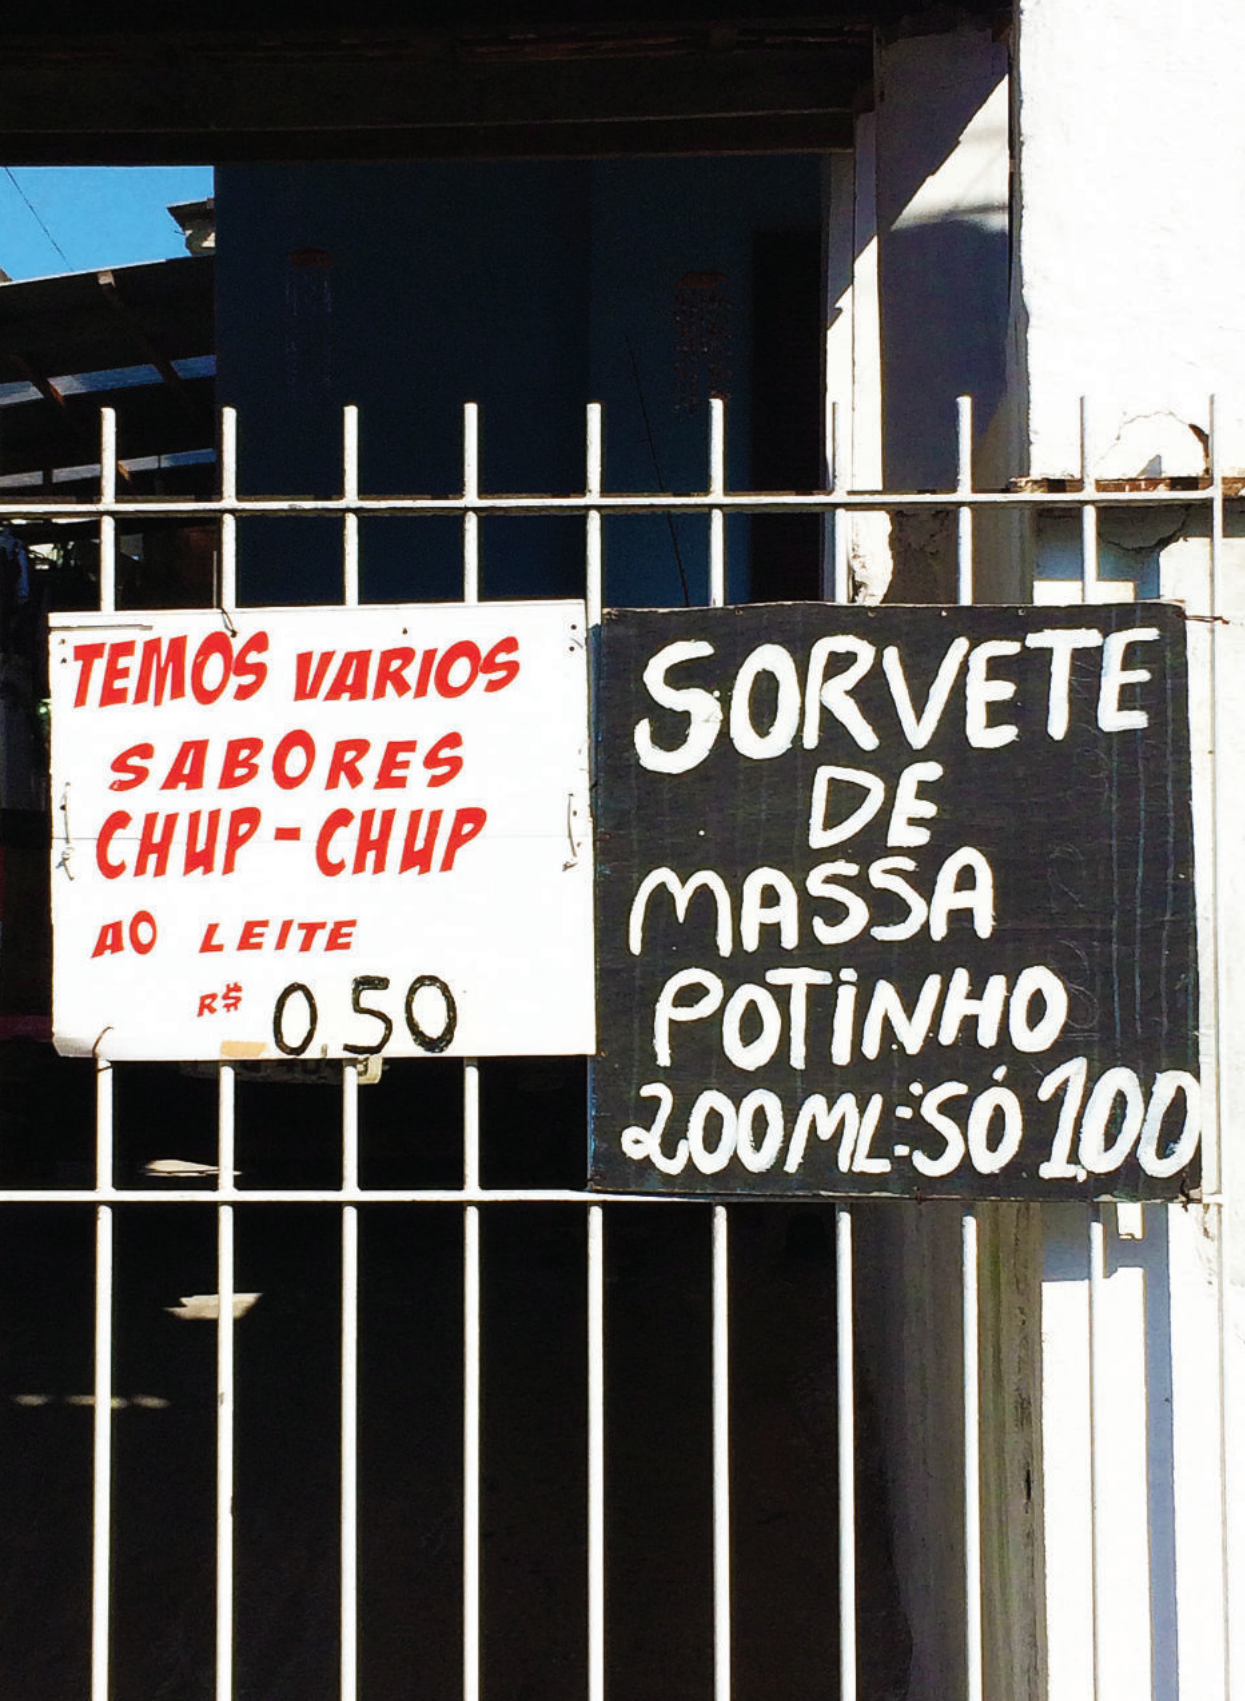 TEMOS VARIOS
SABORES
CHUP-CHUP
AO LEITE
R$ 0,50
SORVETE
DE
MASSA
POTINHO
200ML: SÓ 1,00